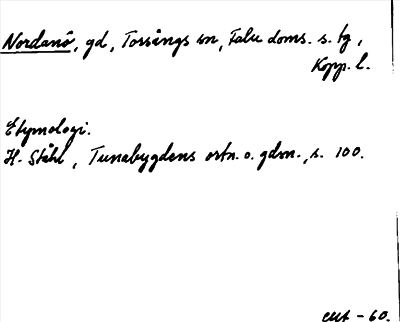 Nordanö, gd, Torsångs sn, Falu doms. s. tg,
Kopp. l.
Etymologi.
H. Ståhl, Tunabygdens ortn. o. gdsn., s. 100.
- 60.